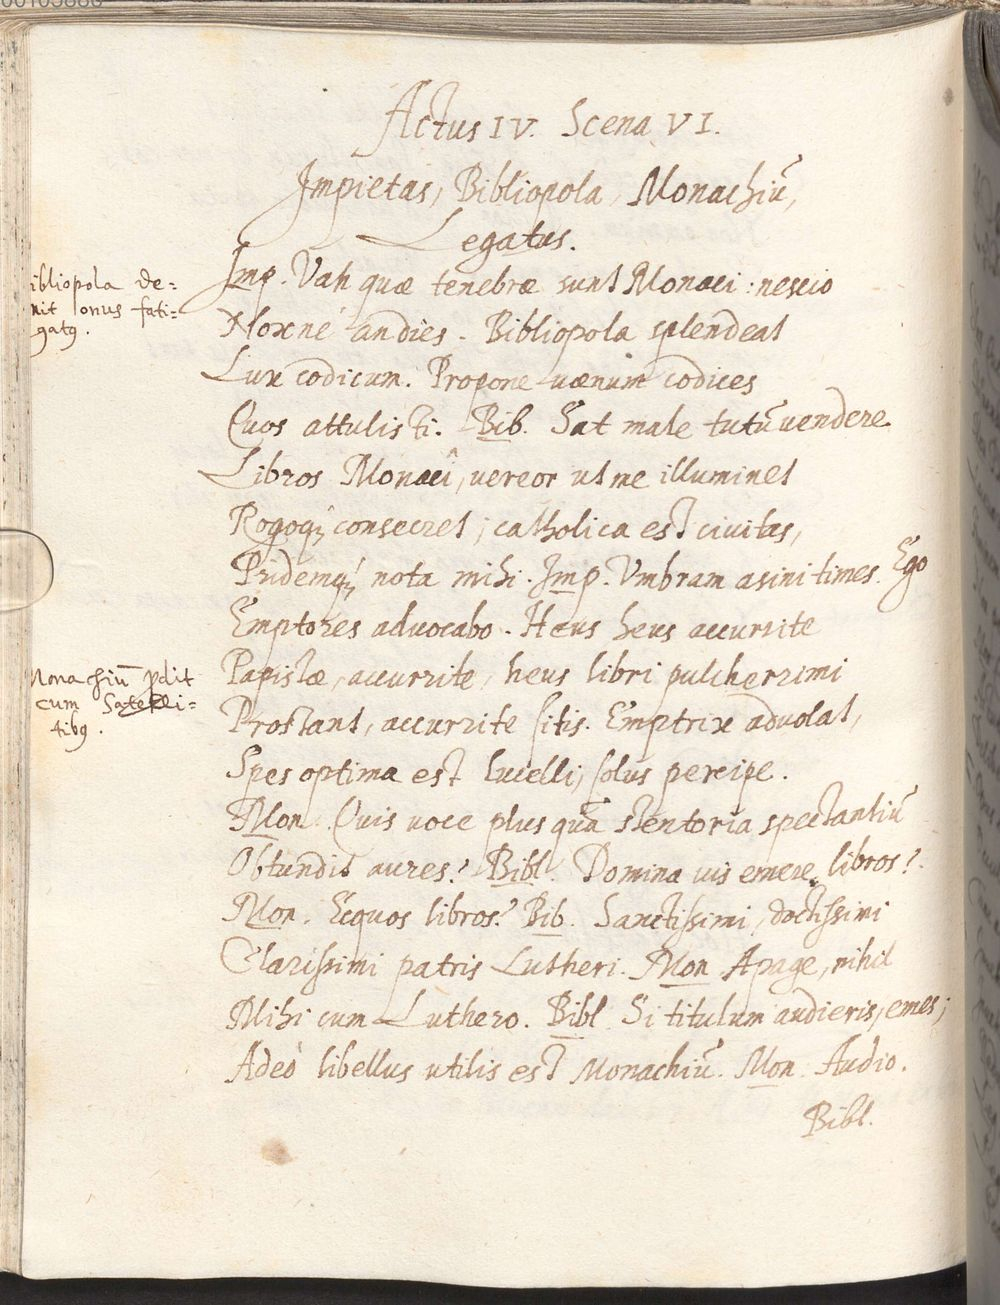 Actus IV. Scena VI.
Impietas, Bibliopola, Monachiū,
Legatus.
Imp. Vah quæ tenebræ sunt Monaci: nescio
Noxné an dies. Bibliopola splendeat
Lux codicum. Propone vænum codices
Quos attulisti. Bib. Sat male tutū vendere
Libros Monaci, vereor ut me illuminet
Rogoq; consecret; catholica est civitas,
Pridemq; nota mihi. Imp. Vmbram asini times. Ego
Emptores advocabo. Heus heus accurrite
Papistæ, accurrite, heus libri pulcherrimi
Prostant, accurrite sitis. Emptrix advolat,
Spes optima est lucelli, solus percipe.
Mon. Quis voce plus quā stentoria spectantiū
Obtundit aures? Bibl. Domina vis emere libros?
Mon. Ecquos libros? Bib. Sanctissimi, doctissimi
Clarissimi patris Lutheri. Mon Apage, nihil
Mihi cum Luthero. Bibl Si titulum audieris, emes;
Adeò libellus utilis est Monachiū. Mon Audio.
Bibl.
ibliopola de=
mit onus fati=
gatg.
Monachiū pdit
cum Satelli=
tibg.